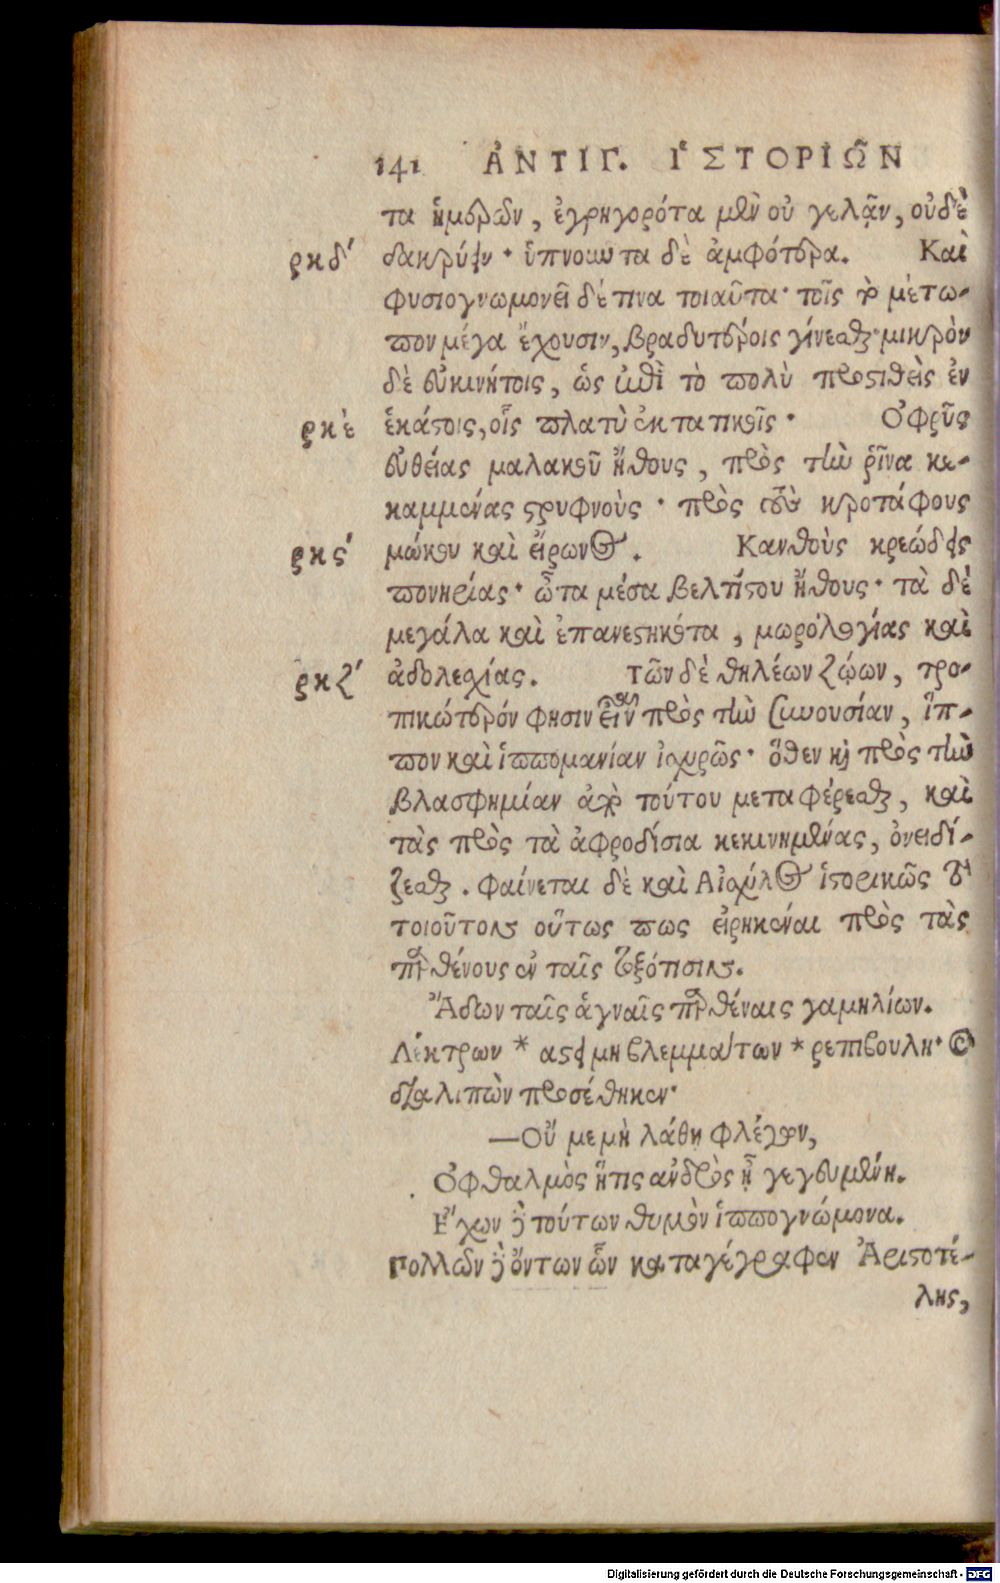 141 ἈΝΤΙΓ. ἹΣΤΟΡΙῶΝ
τα ἡμερῶν, ἐγρηγορότα μὲν οὐ γελᾷν, οὐδὲ
ρκδʹ δακρύειν· ὑπνοῦντα δὲ ἀμφότερα. Καὶ
φυσιογνωμονεῖ δέ τινα τοιαῦτα· τοῖς γὰρ μέτω-
πον μέγα ἔχουσιν, βραδυτέροις γίνεσθαι· μικρὸν
δὲ εὐκινήτοις, ὡς ἐπὶ τὸ πολὺ προστιθεὶς ἐν
ρκέ ἑκάστοις, οἷς πλατὺ ἐκστατικοῖς· Ὀφρῦς
εὐθείας μαλακοῦ ἤθους, πρὸς τὴν ῥῖνα κε-
καμμένας στρυφνούς· πρὸς τοὺς κροτάφους
ρκϛʹ μώκου καὶ εἴρωνος. Κανθοὺς κρεώδεις
πονηρίας· ὦτα μέσα βελτίστου ἤθους· τὰ δὲ
μεγάλα καὶ ἐπανεστηκότα, μωρολογίας καὶ
ρκζʹ ἀδολεσχίας. τῶν δὲ θηλέων ζῴων, τρο-
πικώτερόν φησιν εἶναι πρὸς τὴν συνουσίαν, ἵπ-
πον καὶ ἱππομανίαν ἰσχυρῶς· ὅθεν καὶ πρὸς τὴν
βλασφημίαν ἀπὸ τούτου μεταφέρεσθαι, καὶ
τὰς πρὸς τὰ ἀφροδίσια κεκινημένας, ὀνειδί-
ζεσθαι. φαίνεται δὲ καὶ Αἰσχύλος ἱστορικῶς τὰ
τοιοῦτον οὕτως πως εἰρηκέναι πρὸς τὰς
παρθένους ἐν ταῖς τοξότισιν.
Ἄδων ταῖς ἁγναῖς παρθέναις γαμηλίων.
Λέκτρων * αστει μη βλεμμάτων * ρεπιβουλη· καὶ
διαλιπὼν προσέθηκεν·
—Οὔ με μὴ λάθῃ φλέγων,
Ὀφθαλμὸς ἥτις ἀνδρὸς ᾖ γεγευμένη.
Ἔχων δὲ τούτων θυμὸν ἱππογνώμονα.
Πολλῶν δὲ ὄντων ὧν καταγέγραφεν Ἀριστοτέ-
λης,
Digitalisierung gefördert durch die Deutsche Forschungsgemeinschaft - DFG